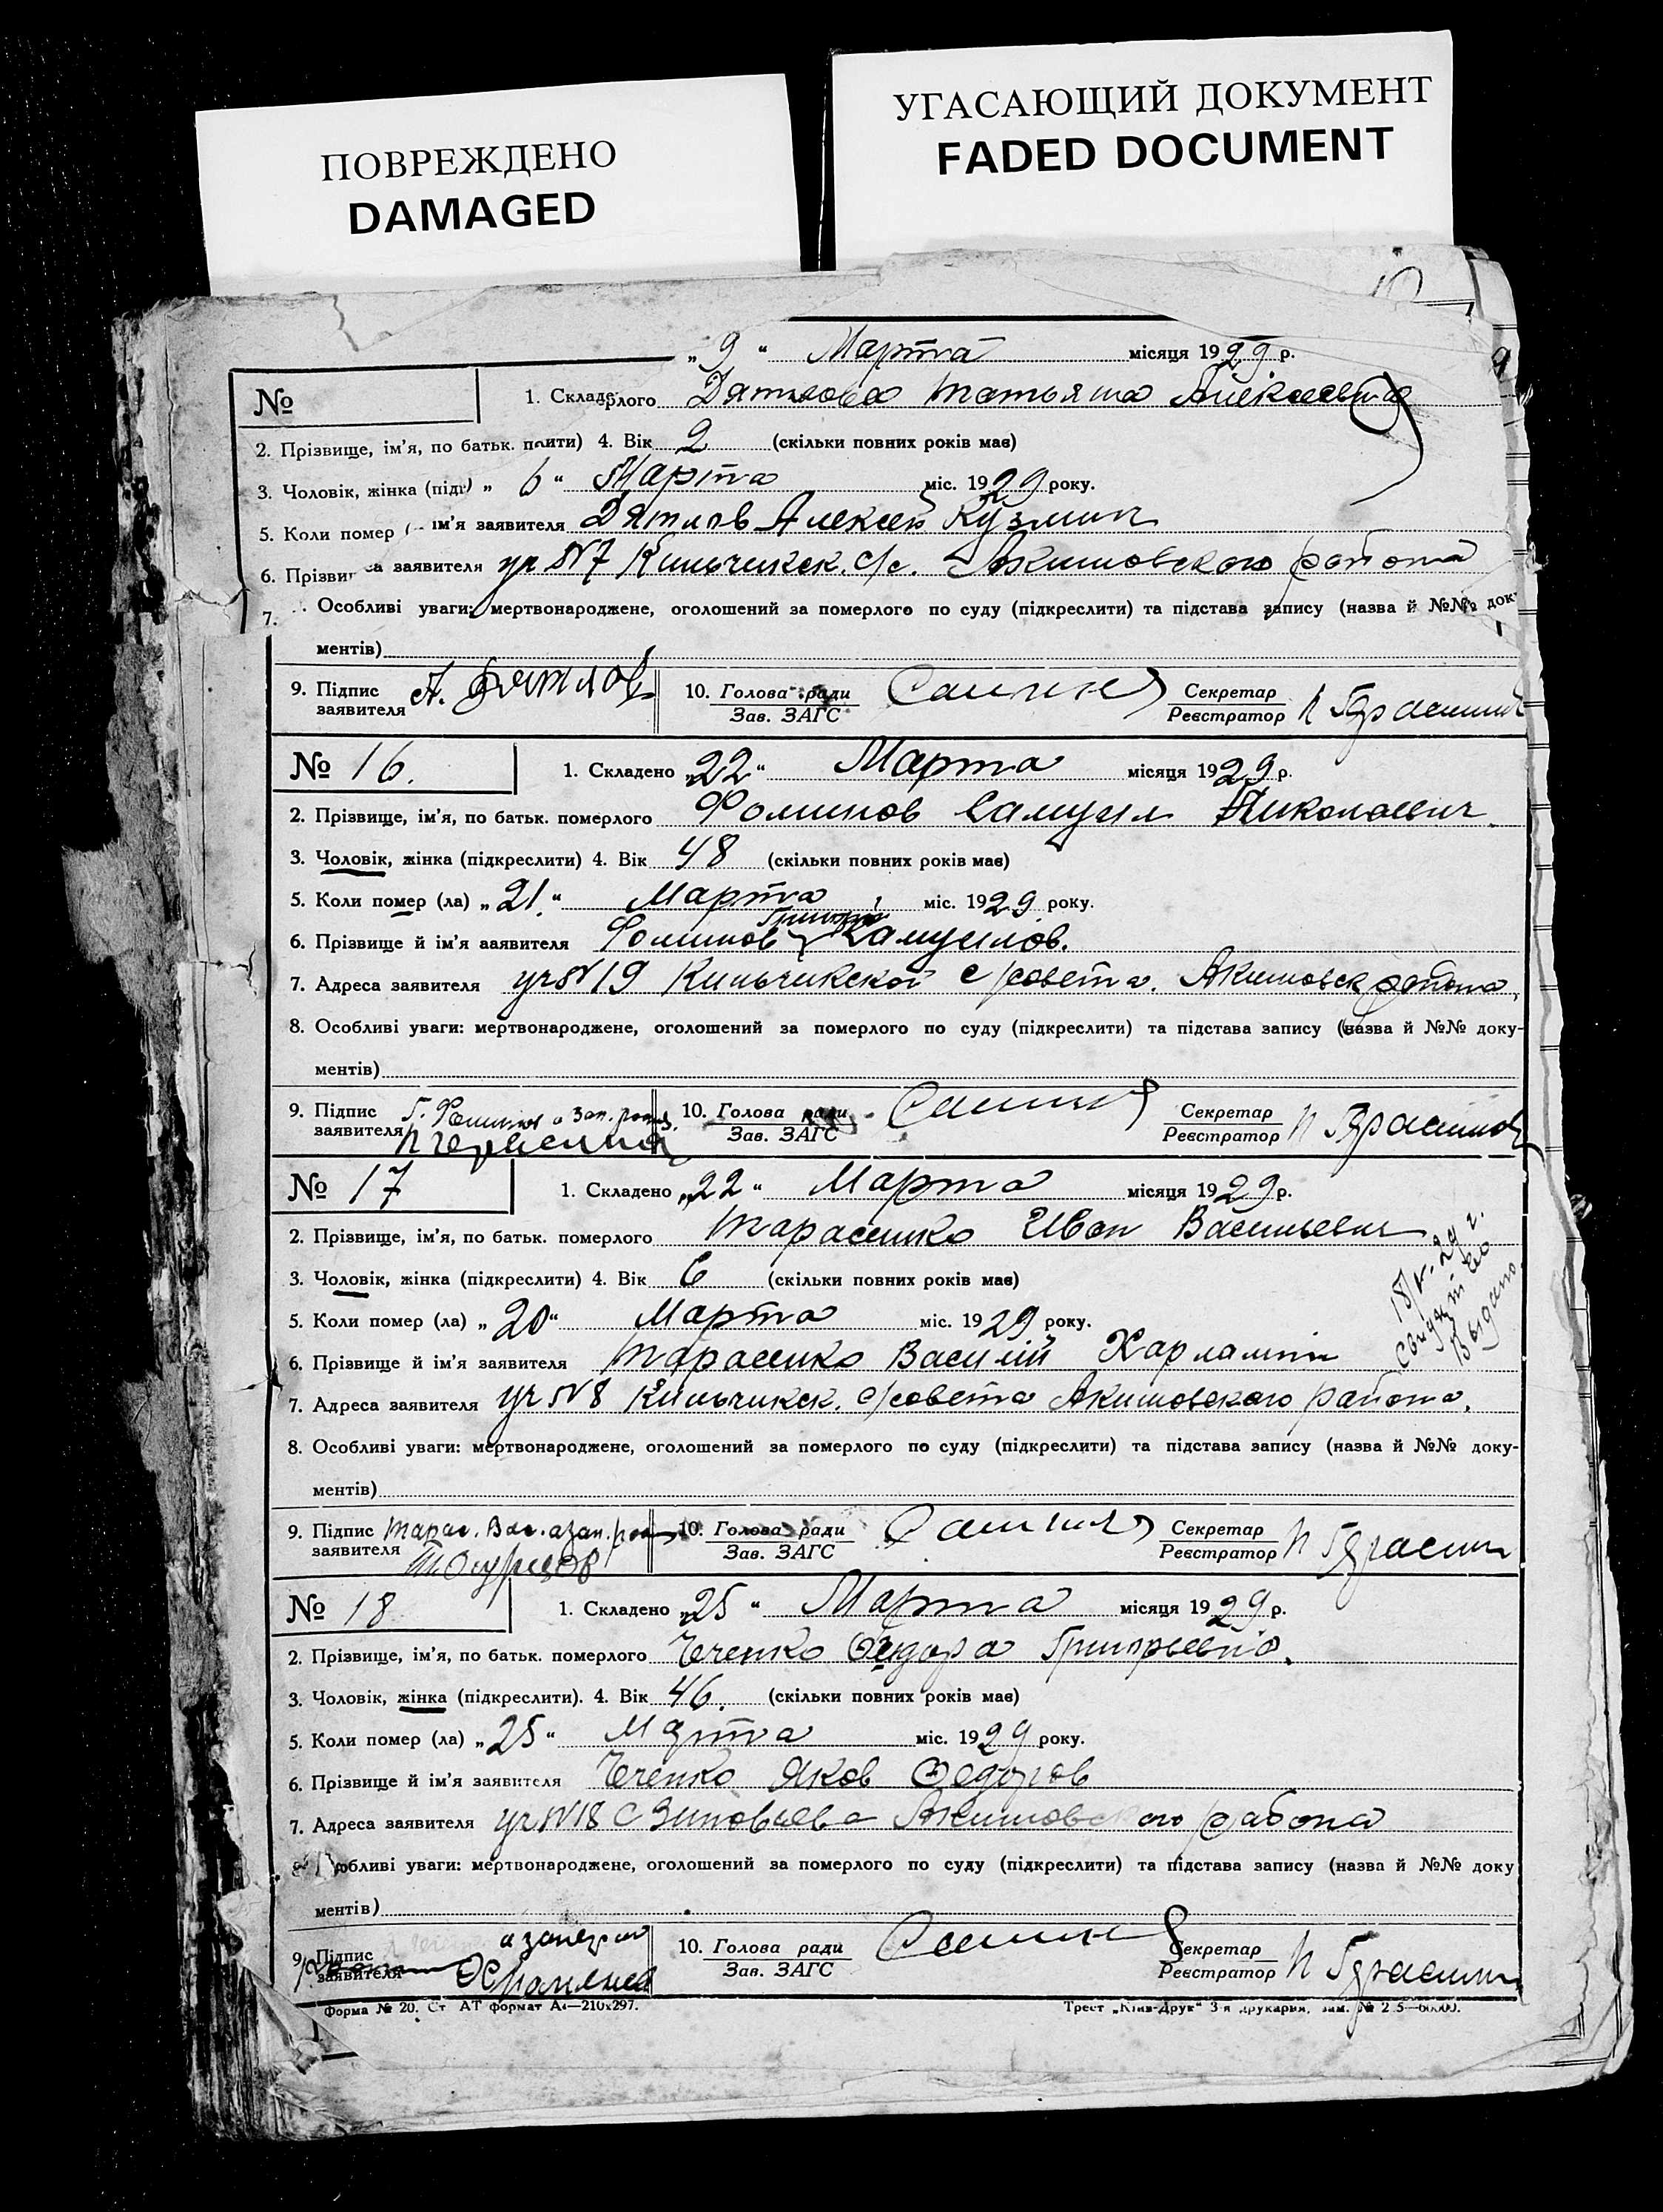 ПОВРЕЖДЕНО
DAMAGED
УГАСАЮЩИЙ ДОКУМЕНТ
FADED DOCUMENT
„9“ Марта місяця 1929 р.
№ 1. Складе
рлого Дятлова Татьяна Алексеевна
2. Прізвище, ім'я, по батьк. п ити) 4. Вік 2 (скільки повних років має)
3. Чоловік, жінка (підк ) „6“ Марта міс. 1929 року.
5. Коли помер ( ім'я заявителя Дятлов Алексей Кузмич
6. Прізвищ са заявителя уч №7 Кильчикск. с/с. Акимовского района
7. Особливі уваги: мертвонароджене, оголошений за померлого по суду (підкреслити) та підстава запису (назва й №№ доку
ментів)
9. Підпис заявителя А. Дятлов 10. Голова ради Зав. ЗАГС Секретар Реєстратор
№ 16. 1. Складено „22“ Марта місяця 1929 р.
2. Прізвище, ім'я, по батьк. померлого Фоминов Самуил Николаевич.
3. Чоловік, жінка (підкреслити) 4. Вік 48 (скільки повних років має)
5. Коли помер (ла) „21.“ Марта міс. 1929 року.
6. Прізвище й ім'я заявителя Фоминов Григорий Самуилов.
7. Адреса заявителя уч №19 Кильчикской с/совета. Акимовск района,
8. Особливі уваги: мертвонароджене, оголошений за померлого по суду (підкреслити) та підстава запису (назва й №№ доку-
ментів)
9. Підпис заявителя Г. Фоминов а зап. 10. Голова ради Зав. ЗАГС Секретар Реєстратор
№ 17 1. Складено „22“ Марта місяця 1929 р.
2. Прізвище, ім'я, по батьк. померлого Тарасенко Иван Васильевич
3. Чоловік, жінка (підкреслити) 4. Вік 6 (скільки повних років має)
5. Коли помер (ла) „20“ Марта міс. 1929 року.
6. Прізвище й ім'я заявителя Тарасенко Василий Харлампи
7. Адреса заявителя уч №8 Кильчикск. с/совета Акимовского района.
8. Особливі уваги: мертвонароджене, оголошений за померлого по суду (підкреслити) та підстава запису (назва й №№ доку-
ментів)
9. Підпис заявителя Тарас. Вас. а зап. 10. Голова ради Зав. ЗАГС Секретар Реєстратор
№ 18 1. Складено „25“ Марта місяця 1929 р.
2. Прізвище, ім'я, по батьк. померлого Чеченко Федора Григорьевна.
3. Чоловік, жінка (підкреслити). 4. Вік 46. (скільки повних років має)
5. Коли помер (ла) „25“ Марта міс. 1929 року.
6. Прізвище й ім'я заявителя Чеченко Яков Федоров
7. Адреса заявителя уч №18 С Зиновьева Акимовского района
обливі уваги: мертвонароджене, оголошений за померлого по суду (підкреслити) та підстава запису (назва й №№ доку
ментів)
9. Підпис заявителя 10. Голова ради Зав. ЗАГС Секретар Реєстратор
Форма № 20. Ст АТ формат А4—210x297. Трест „Київ-Друк“ 3-я друкарня, зам. №